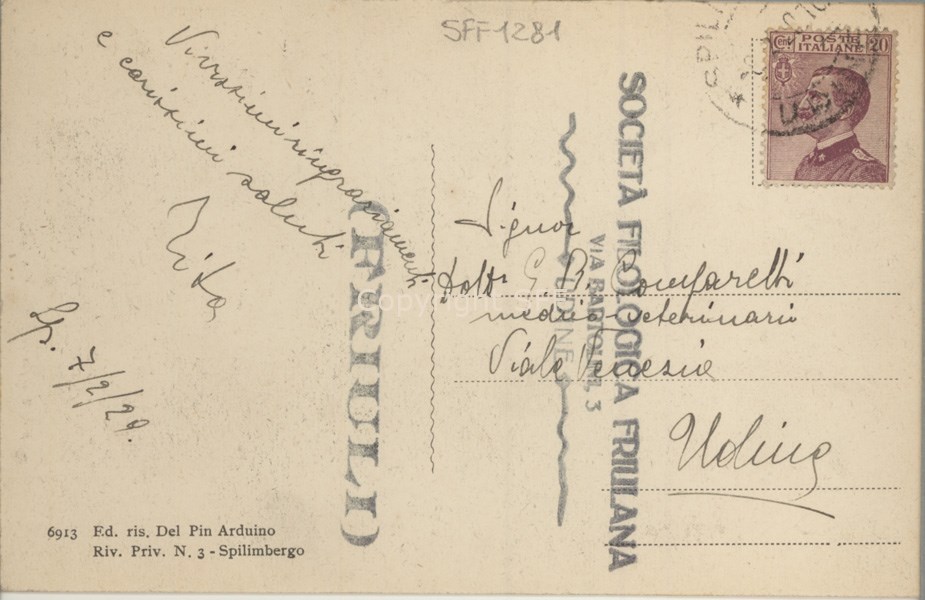 SFF1281
Vivissimi ringraziamenti
e
carissimi saluti
Rita
Sp. 7/2/29.
6913 Ed. ris. Del Pin Arduino
Riv. Priv. N. 3 - Spilimbergo
(FRIULI)
Copyright SFF
Cent POSTE 20
ITALIANE
SPILI
Signor
Dott. G. B.
medico veterinario
Viale Venezia
Udine
SOCIETÀ FILOLOGICA FRIULANA
VIA BARTOLINI, 3
UDINE